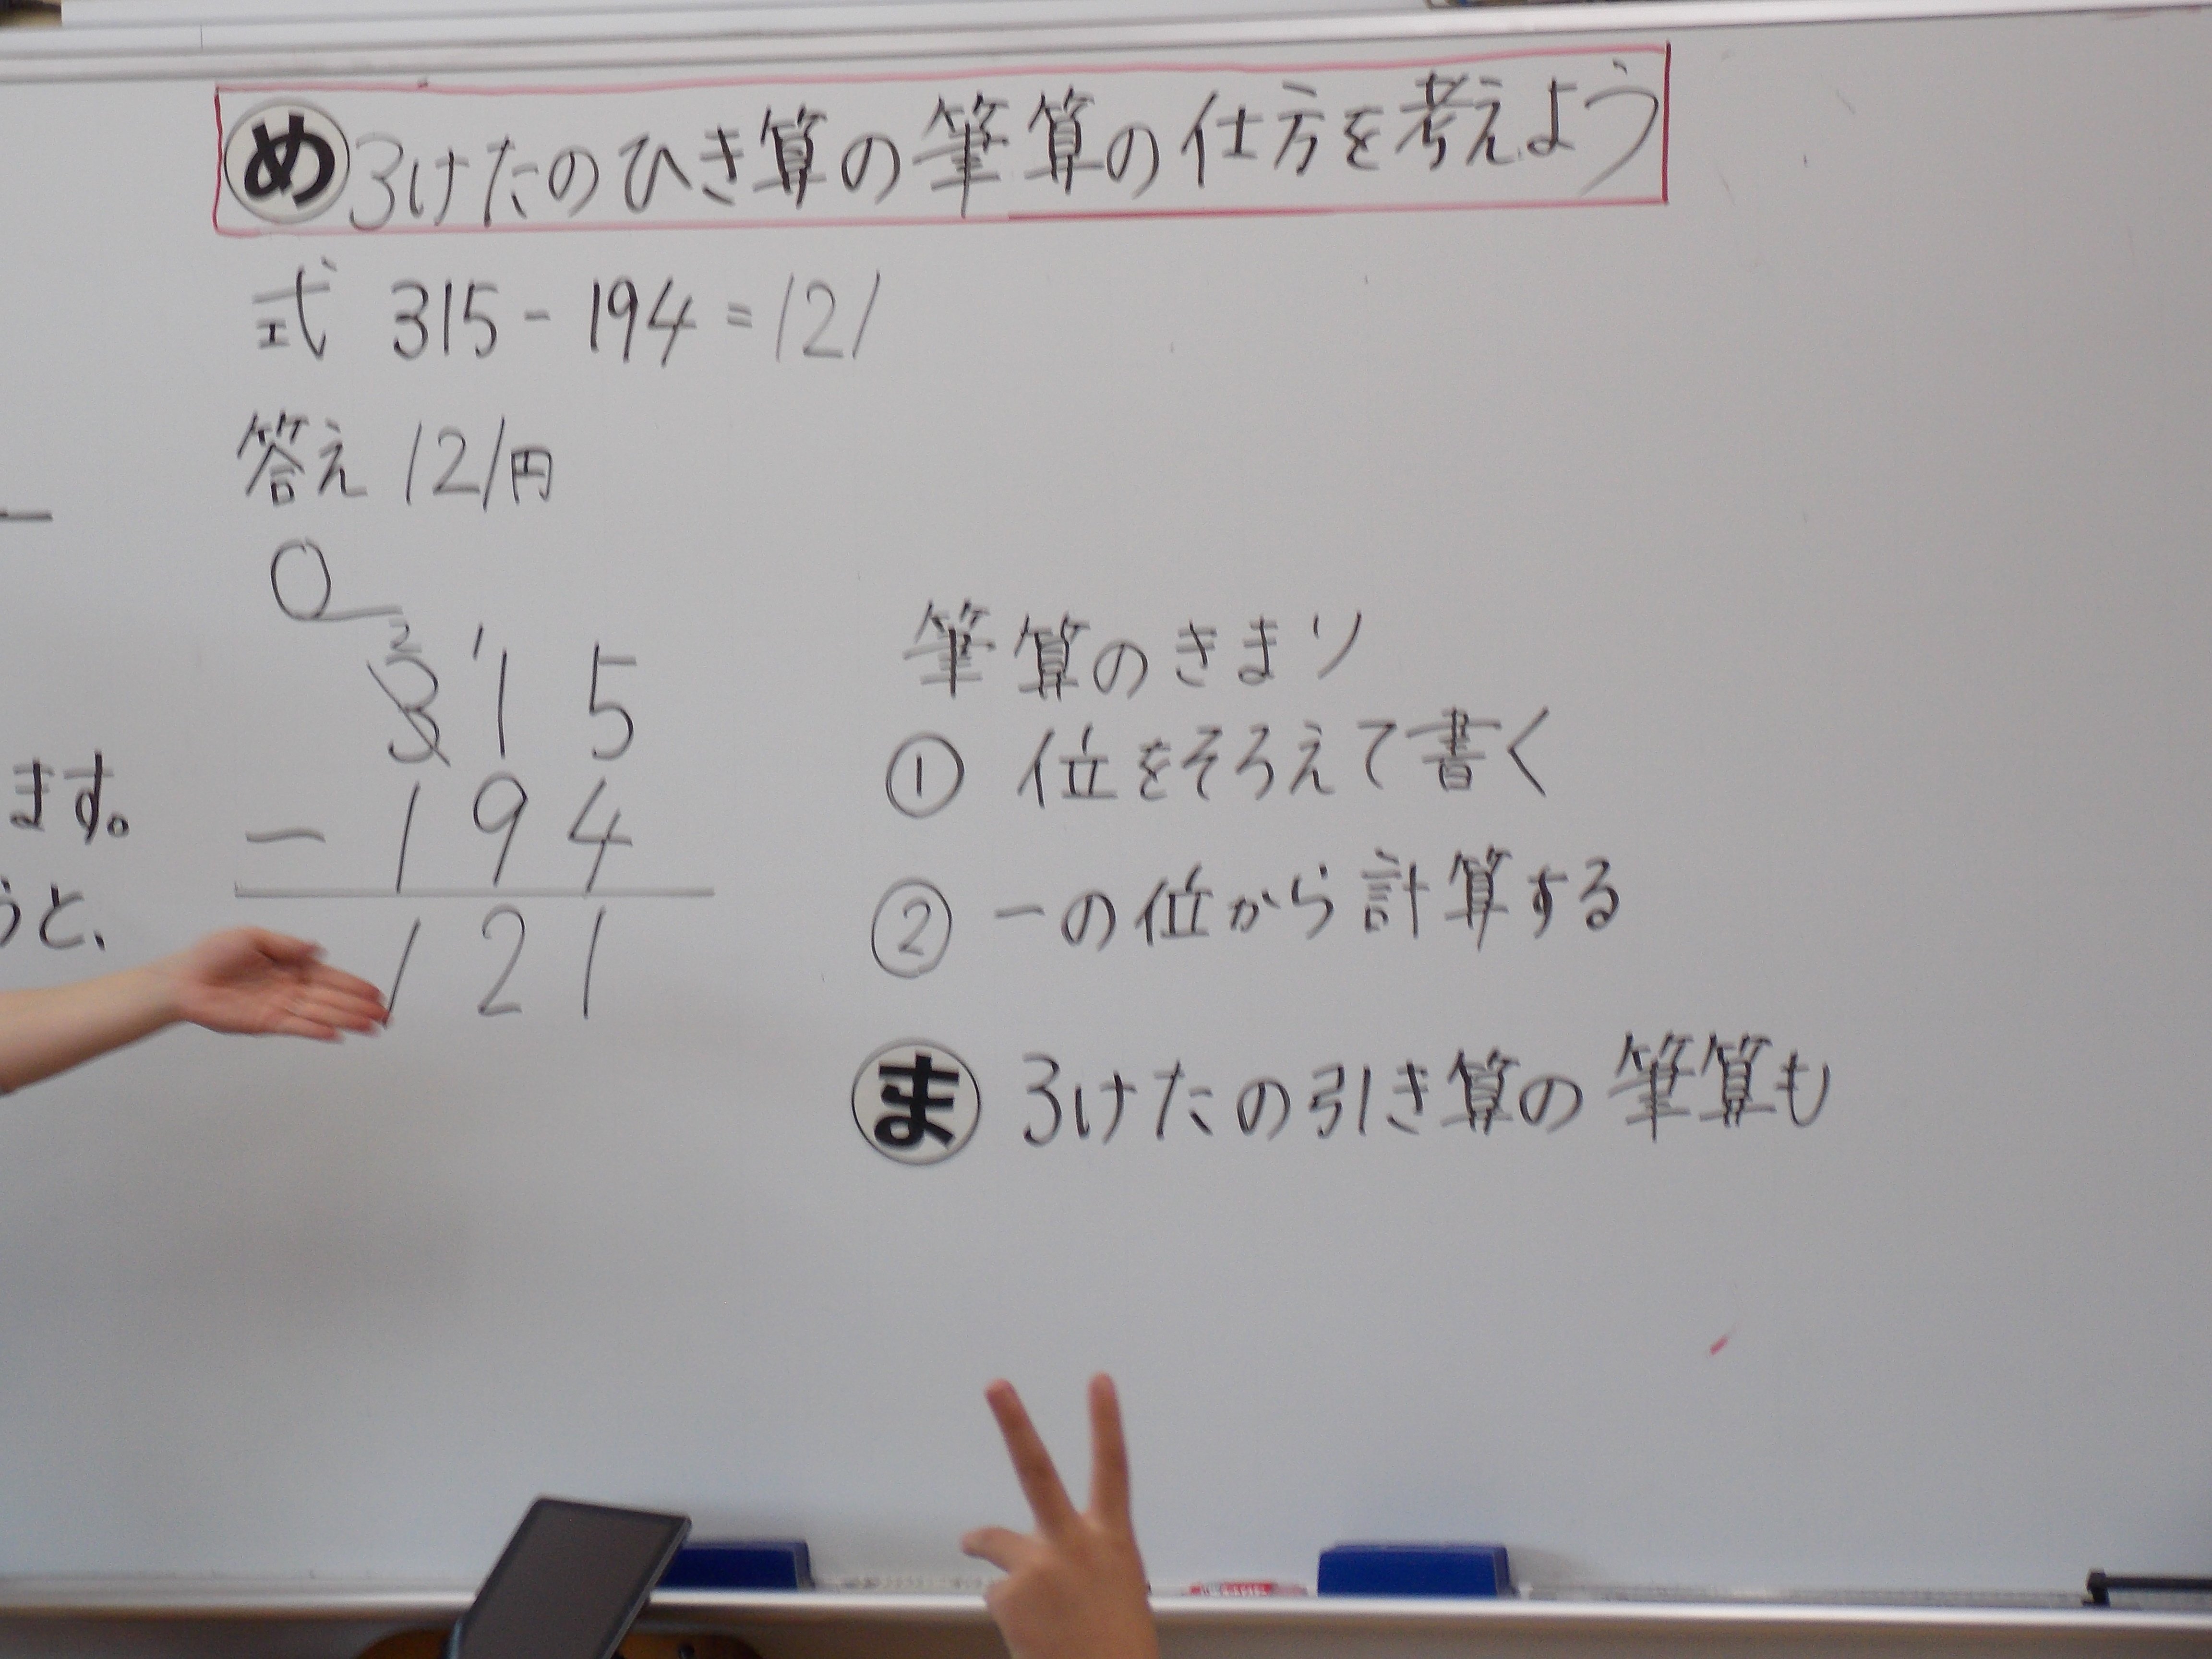 ます。
うと、
め 3けたのひき算の筆算の仕方を考えよう
式 315-194=121
答え 121円
0
2 1
315
-194
121
筆算のきまり
① 位をそろえて書く
② 一の位から計算する
ま 3けたの引き算の筆算も